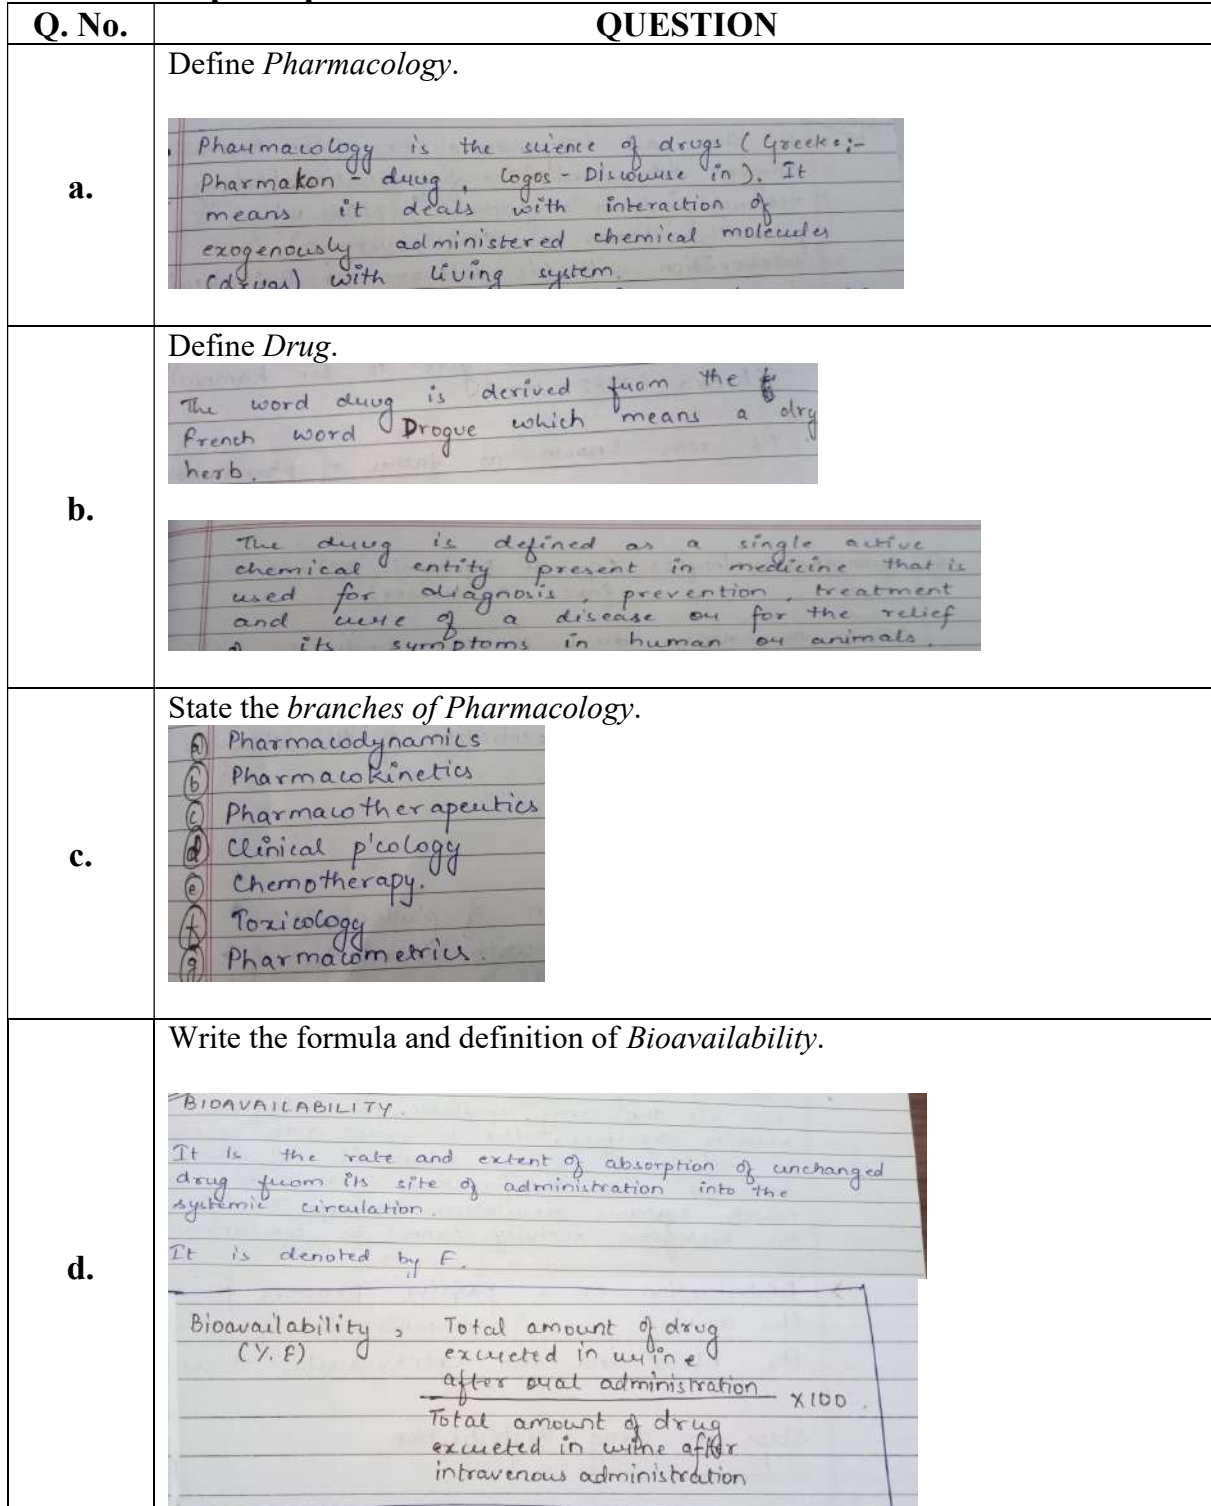 Q. No.
QUESTION
a.
Define Pharmacology.
Pharmacology is the science of drugs ( Greek :-
Pharmakon - drug , Logos - Discourse in ). It
means it deals with interaction of
exogenously administered chemical molecules
(drugs) with living system.
b.
Define Drug.
The word drug is derived from the
French word Drogue which means a dry
herb.
The drug is defined as a single active
chemical entity present in medicine that is
used for diagnosis , prevention , treatment
and cure of a disease or for the relief
of its symptoms in human or animals.
c.
State the branches of Pharmacology.
a Pharmacodynamics
b Pharmacokinetics
c Pharmacotherapeutics
d Clinical p'cology
e Chemotherapy.
f Toxicology
g Pharmacometrics.
d.
Write the formula and definition of Bioavailability.
BIOAVAILABILITY.
It is the rate and extent of absorption of unchanged
drug from its site of administration into the
systemic circulation.
It is denoted by F.
Bioavailability , Total amount of drug
(%. F) excreted in urine
after oral administration
x100.
Total amount of drug
excreted in urine after
intravenous administration